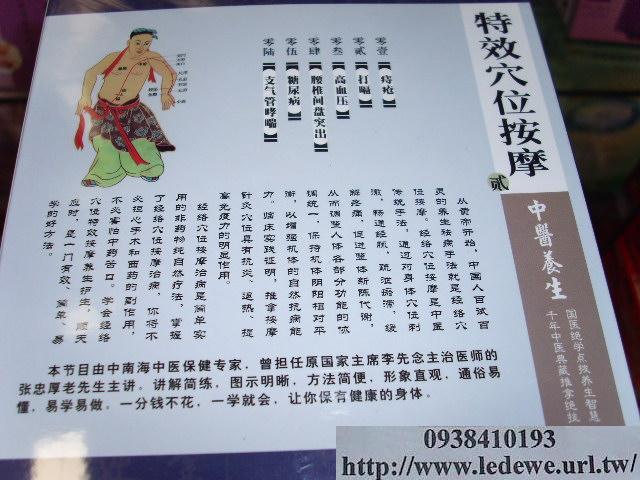 特效穴位按摩
贰
中醫養生
国医绝学点拨养生智慧
千年中医典藏推拿绝技
零壹【痔疮】
零贰【打嗝】
零叁【高血压】
零肆【腰椎间盘突出】
零伍【糖尿病】
零陆【支气管哮喘】
从黄帝开始，中国人百试百
灵的养生祛病手法就是经络穴
位按摩。经络穴位按摩是中医
传统手法，通过对身体穴位刺
激，畅通经脉，疏泄瘀滞，缓
解疼痛，促进整体新陈代谢，
从而调整人体各部分功能的协
调统一，保持机体阴阳相对平
衡，以增强机体的自然抗病能
力。临床实践证明，推拿按摩
针灸穴位具有抗炎、退热、提
高免疫力的明显作用。
经络穴位按摩治病是简单实
用的非药物纯自然疗法，掌握
了经络穴位按摩治病，你将不
必担心手术和西药的副作用，
不必害怕中药苦口。学会经络
穴位特效按摩养生护生，顺天
应时，是一门有效、简单、易
学的好方法。
本节目由中南海中医保健专家，曾担任原国家主席李先念主治医师的
张忠厚老先生主讲。讲解简练，图示明晰，方法简便，形象直观，通俗易
懂，易学易做。一分钱不花，一学就会，让你保有健康的身体。
0938410193
http://www.ledewe.url.tw/